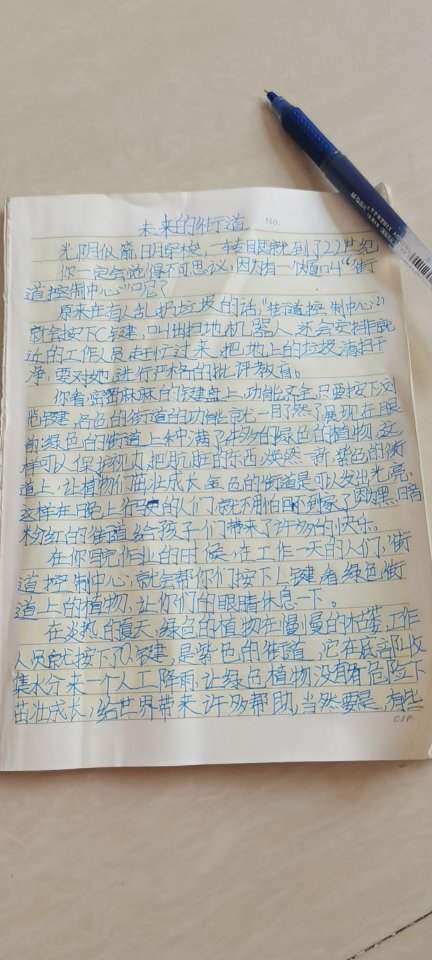 未来的街道 No.
光阴似箭,日月穿梭,一转眼就到了22世纪,
你一定会觉得不可思议,因为有一个值叫“街
道控制中心”呢?
原来在有人乱扔垃圾的话,“街道控制中心”
就会按下C键,叫出扫地机器人,还会安排就
近的工作人员走到过来把地上的垃圾清扫干
净,要对她进行严格的批评教育。
你看密密麻麻的键盘上,功能齐全,只要按下
键,各色的街道的功能就一目了然了展现在眼
前绿色的街道上种满了许多的绿色的植物,这
样可以保护视力把肮脏的东西焕然一新,紫色的街
道上,让植物们茁壮成长,金色的街道是可以发出光亮,
这样在晚上行的人们,就不用怕回不到家了因为黑暗
粉红的街道给孩子们带来了许多的快乐。
在你写完作业的时候,在工作一天的人们,街
道控制中心,就会帮你们按下L键看绿色街
道上的植物,让你们的眼睛休息一下。
在炎热的夏天,绿色的植物在慢慢的木,工作
人员就按下TO键,是紫色的街道,它在底部吸收
集水分来一个人工降雨,让绿色植物没有危险下
茁壮成长,给世界带来许多帮助,当然要是,有些
CJP